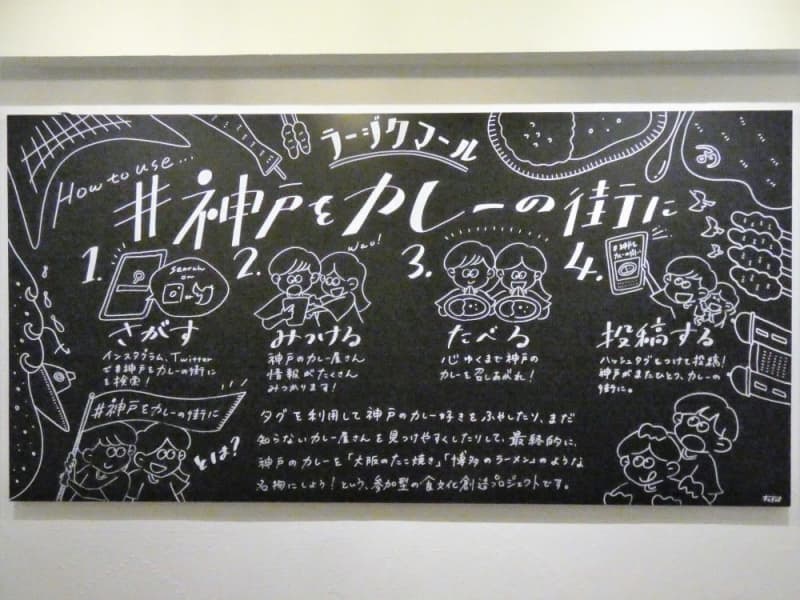 ラージクマール
How to use...
#神戸をカレーの街に
1.
Search on
さがす
インスタグラム、Twitter
で#神戸をカレーの街に
を検索!
2.
Wao!
みつける
神戸のカレー屋さん
情報がたくさん
みつかります!
3.
たべる
心ゆくまで神戸の
カレーを召しあがれ!
4.
#神戸を
カレーの街に
投稿する
ハッシュタグをつけて投稿!
神戸がまたひとつ、カレーの
街に。
#神戸をカレーの街に
とは?
タグを利用して神戸のカレー好きをふやしたり、まだ
知らないカレー屋さんを見つけやすくしたりして、最終的に、
神戸のカレーを「大阪のたこ焼き」「博多のラーメン」のような
名物にしよう!という、参加型の食文化創造プロジェクトです。